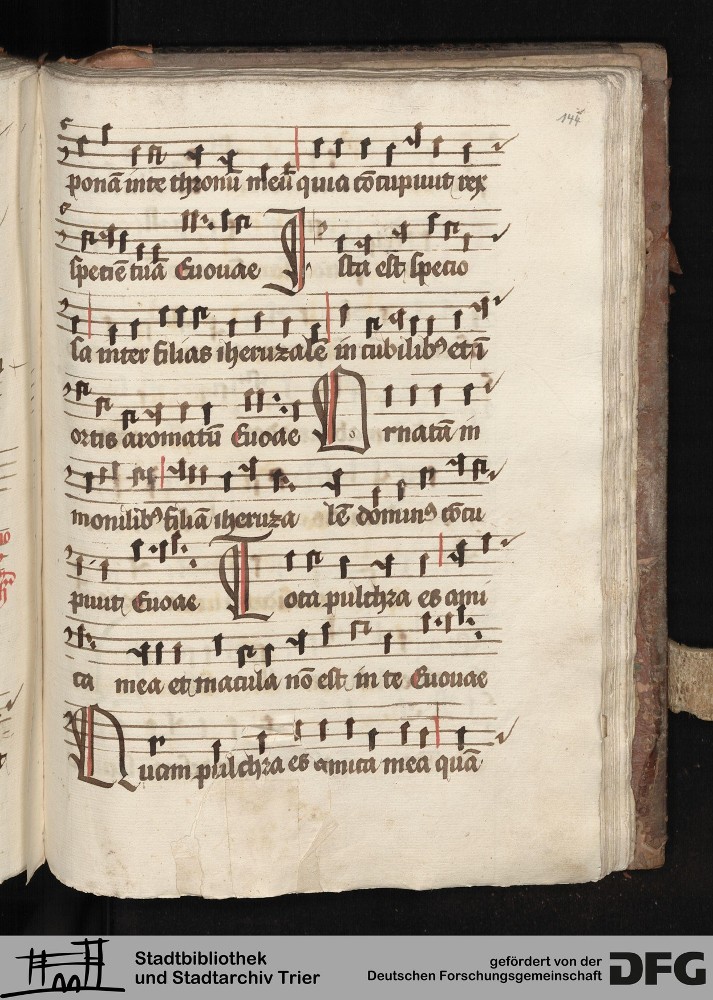 144
ponā in te thronū meū quia cōcupiuit rex
speciē tuā Euouae Ista est specio
sa inter filias iheruzalē in cubilibꝰ et ī
ortis aromatū Euoae Ornatam in
monilibꝰ filiā iheruza lē dominꝰ cōcu
piuit Euoae Tota pulchra es ami
ca mea et macula nō est in te Euouae
Quam pulchra es amica mea quā
Stadtbibliothek
und Stadtarchiv Trier
gefördert von der
Deutschen Forschungsgemeinschaft
DFG